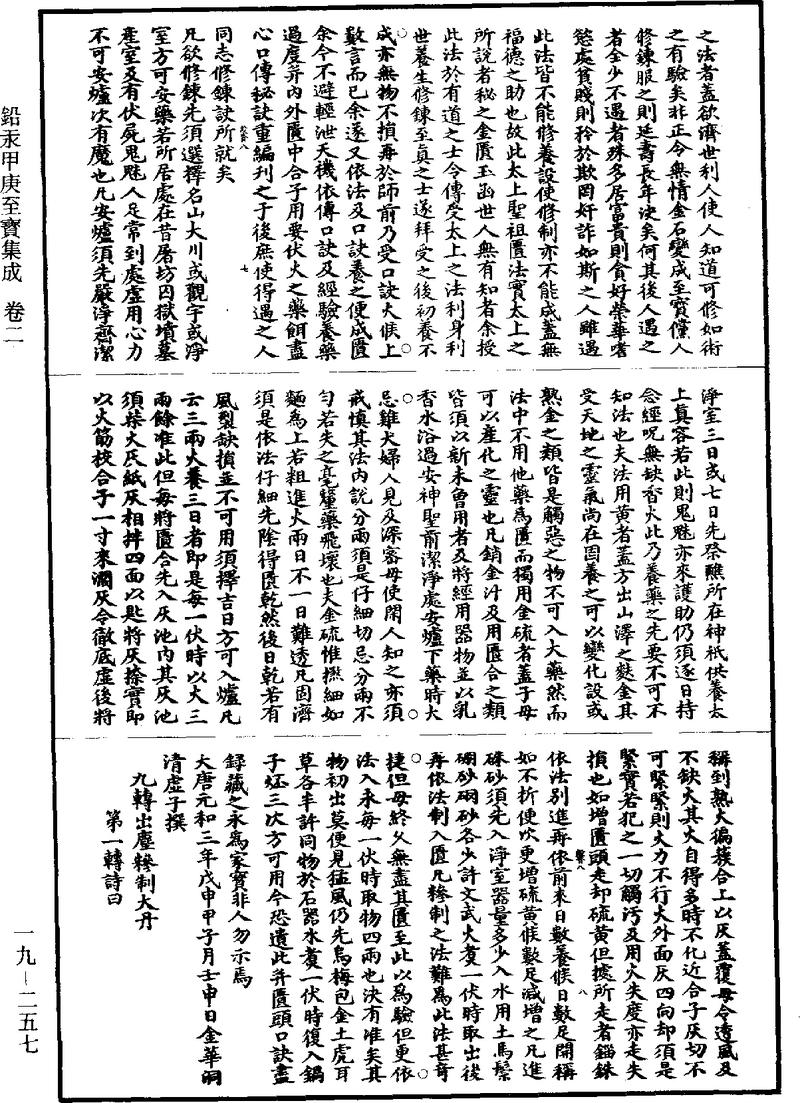 之法者蓋欲濟世利人使人知道可修如術
之有驗矣非正令無情金石變成至寶儻人
修鍊服之則延壽長年決矣何其後人遇之
者全少不遇者殊多居富貴則貪好榮華嗜
慾處貧賤則矜於欺罔奸詐如斯之人雖遇
此法皆不能修養設使修制亦不能成蓋無
福德之助也故此太上聖祖匱法實太上之
所說者秘之金匱玉函世人無有知者余授
此法於有道之士令傳受太上之法利身利
世養生修鍊至真之士遂拜受之後初養不
成亦無物不損再於師前乃受口訣火候上
數言而已余遂又依法及口訣養之便成匱
余今不避輕泄天機依傳口訣及經驗養藥
過度并內外匱中合子用要伏火之藥餌盡
心口傳秘訣重編刊之于後庶使得遇之人
同志修鍊訣所就矣
凡欲修鍊先須選擇名山大川或觀宇或淨
室方可安藥若所居處在昔屠坊囚獄墳墓
產室及有伏屍鬼魅人足常到處虛用心力
不可安爐次有魔也凡安爐須先嚴淨齋潔
淨室三日或七日先祭醮所在神祇供養太
上真容若此則鬼魅亦來護助仍須逐日持
念經呪無缺香火此乃養藥之先要不可不
知法也夫法用黃者蓋方出山澤之麩金其
受天地之靈氣尚在因養之可以變化設或
熟金之類皆是觸惡之物不可入大藥然而
法中不用他藥為匱而獨用金硫者蓋子母
可以產化之靈也凡銷金汁及用匱合之類
皆須以新未曾用者及將經用器物並以乳
香水浴過安神聖前潔淨處安爐下藥時大
忌雞犬婦人見及深審毋使閑人知之亦須
戒慎其法內說分兩須是仔細切忌分兩不
勻若失之毫釐藥飛壞也夫金硫惟撚細如
麵為上若粗進火兩日不一日難透凡固濟
須是依法仔細先陰得匱乾然後日乾若有
風裂缺損並不可用須擇吉日方可入爐凡
云三兩火養三日者即是每一伏時以火三
兩餘准此但每將匱合先入灰池內其灰池
須柴火灰紙灰相拌四面以匙將灰捺實即
以火筯校合子一寸來濶灰令徹底虛後將
稱到熟火徧簇合上以灰蓋覆毋令透風及
不缺火其火自得多時不化近合子灰切不
可緊緊則火力不行火外面灰四向却須是
緊實若犯之一切觸污及用火失度亦走失
損也如增匱頭走却硫黃但據所走者錙銖
依法別進再依前來日數養候日數足開稱
如不折便次更增硫黃候數足減增之凡進
硃砂須先入淨室器量多少入水用土馬鬃
硼砂硇砂各少許文武火煮一伏時取出後
再依法制入匱凡糝制之法難為此法甚奇
捷但母終父無盡其匱至此以為驗但更依
法入汞每一伏時取物四兩也決有准矣其
物初出莫便見猛風仍先烏梅包金土虎耳
草各半許同物於石器水煮一伏時復入鍋
子坯三次方可用今恐遺此并匱頭口訣盡
録藏之永為家寶非人勿示焉
大唐元和三年戊申甲子月壬申日金華洞
清虛子撰
九轉出塵糝制大丹
第一轉詩曰
鉛汞甲庚至寶集成　卷二
一九－二五七